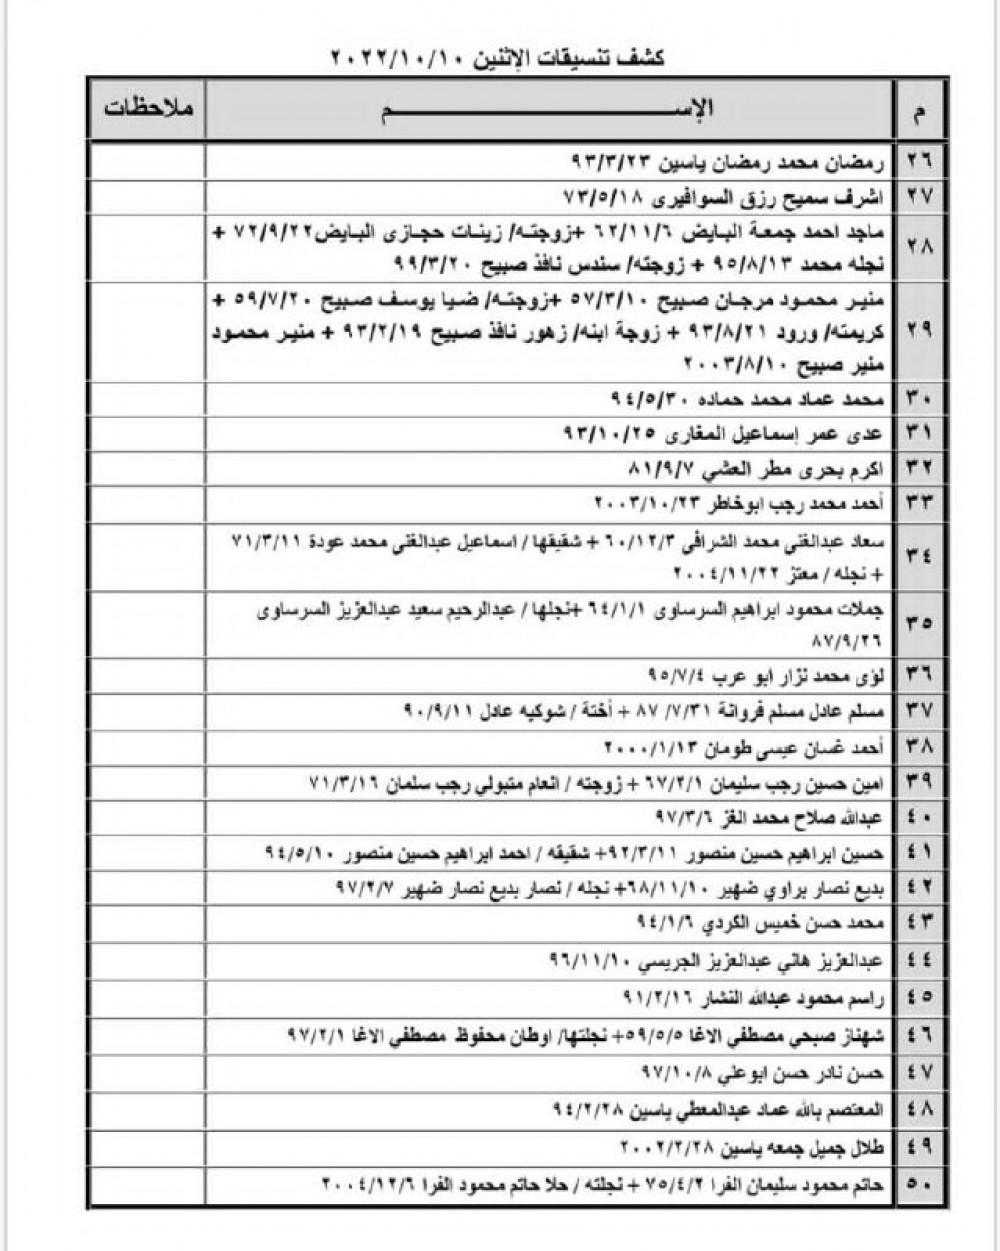 كشف تنسيقات الإثنين ٢٠٢٢/١٠/١٠
م الإســـــــــم ملاحظات
٢٦ رمضان محمد رمضان ياسين ٩٣/٣/٢٣
٢٧ اشرف سميح رزق السوافيرى ٧٣/٥/١٨
٢٨ ماجد احمد جمعة البايض ٦٢/١١/٦ +زوجته/ زينات حجازى البايض٧٢/٩/٢٢ +
نجله محمد ٩٥/٨/١٣ + زوجته/ سندس نافذ صبيح ٩٩/٣/٢٠
٢٩ منير محمود مرجان صبيح ٥٧/٣/١٠ +زوجته/ ضيا يوسف صبيح ٥٩/٧/٢٠ +
كريمته/ ورود ٩٣/٨/٢١ + زوجة ابنه/ زهور نافذ صبيح ٩٣/٢/١٩ + منير محمود
منير صبيح ٢٠٠٣/٨/١٠
٣٠ محمد عماد محمد حماده ٩٤/٥/٣٠
٣١ عدى عمر إسماعيل المغارى ٩٣/١٠/٢٥
٣٢ اكرم بحرى مطر العشي ٨١/٩/٧
٣٣ أحمد محمد رجب ابوخاطر ٢٠٠٣/١٠/٢٣
٣٤ سعاد عبدالغنى محمد الشرافى ٦٠/١٢/٣ + شقيقها / اسماعيل عبدالغنى محمد عودة ٧١/٣/١١
+ نجله / معتز ٢٠٠٤/١١/٢٢
٣٥ جملات محمود ابراهيم السرساوى ٦٤/١/١ +نجلها / عبدالرحيم سعيد عبدالعزيز السرساوى
٨٧/٩/٢٦
٣٦ لؤى محمد نزار ابو عرب ٩٥/٧/٤
٣٧ مسلم عادل مسلم فروانة ٨٧ /٧/٣١ + أختة / شوكيه عادل ٩٠/٩/١١
٣٨ أحمد غسان عيسى طومان ٢٠٠٠/١/١٣
٣٩ امين حسين رجب سليمان ٦٧/٢/١ + زوجته / انعام متبولي رجب سلمان ٧١/٣/١٦
٤٠ عبدالله صلاح محمد الغز ٩٧/٣/٦
٤١ حسين ابراهيم حسين منصور ٩٢/٣/١١+ شقيقه / احمد ابراهيم حسين منصور ٩٤/٥/١٠
٤٢ بديع نصار براوي ضهير ٦٨/١١/١٠+ نجله / نصار بديع نصار ضهير ٩٧/٢/٧
٤٣ محمد حسن خميس الكردي ٩٤/١/٦
٤٤ عبدالعزيز هاني عبدالعزيز الجريسي ٩٦/١١/١٠
٤٥ راسم محمود عبدالله النشار ٩١/٢/١٦
٤٦ شهناز صبحي مصطفي الاغا ٥٩/٥/٥+ نجلتها/ اوطان محفوظ مصطفي الاغا ٩٧/٢/١
٤٧ حسن نادر حسن ابوعلي ٩٧/١٠/٨
٤٨ المعتصم بالله عماد عبدالمعطي ياسين ٩٤/٢/٢٨
٤٩ طلال جميل جمعه ياسين ٢٠٠٢/٢/٢٨
٥٠ حاتم محمود سليمان الفرا ٧٥/٤/٢ + نجلته / حلا حاتم محمود الفرا ٢٠٠٤/١٢/٦